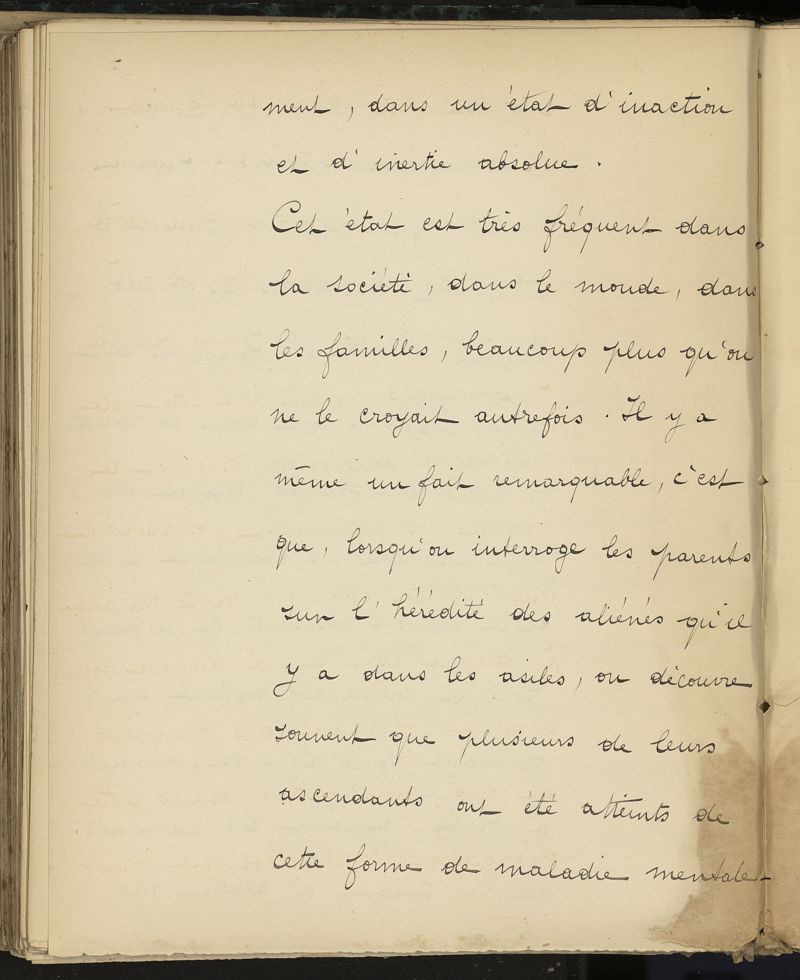 ment, dans un état d'inaction
et d'inertie absolue.
Cet état est très fréquent dans
la société, dans le monde, dans
les familles, beaucoup plus qu'on
ne le croyait autrefois. Il y a
même un fait remarquable, c'est
que, lorsqu'on interroge les parents
sur l'hérédité des aliénés qu'il
y a dans les asiles, on découvre
souvent que plusieurs de leurs
ascendants ont été atteints de
cette forme de maladie mentale